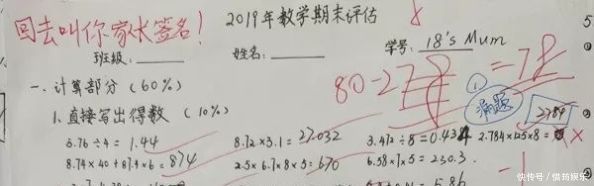 回去叫你家长签名!
2019年数学期末评估
班级:
姓名:
学号: 18's Mum
80-2
=78
一、计算部分 (60%)
① 漏题
1. 直接写出得数 (10%)
2784
5.76÷4= 1.44 8.72×3.1= 27.032 3.472÷8=0.434 2.784×125×8=
8.74×40+87.4×6= 874 2.5×6.7×8×5=670 6.58×7×5=230.3
-1
5.86
快传号/慎筠娱乐